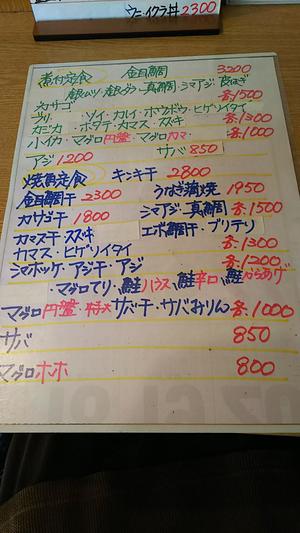 ウニイクラ丼 2300
煮付定食 金目鯛 3200
銀ムツ・銀ダラ・真鯛・シマアジ・皮はぎ
カサゴ 各1500
ブリ・ソイ・カレイ・ホウボウ・ヒゲソイタイ
カミカ・ホタテ・カマス・スズキ 各1300
小イカ・マグロ円盤・マグロカマ・ 各1000
アジ 1200 サバ 850
焼魚定食 キンキ干 2800
金目鯛干 2300 うなぎ蒲焼 1950
カサゴ干 1800 シマアジ・真鯛 各1500
カマス干 スズキ エボ鯛干・ブリテリ
カマス・ヒゲソイタイ 各1300
シマホッケ・アジ干・アジ 各1200
マグロテリ・鮭ハラス・鮭辛口・鮭からあげ
マグロ円盤・特大サバ干・サバみりん 各1000
サバ 850
マグロホホ 800